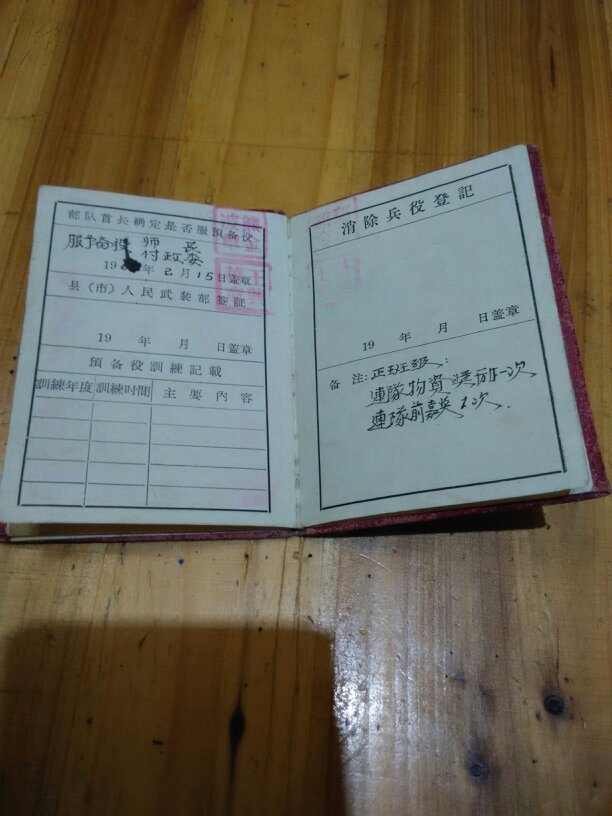 部队首长确定是否服预备役
服预备役 师 长
付政委
19 年 2 月 15 日盖章
县（市）人民武装部签証
19 年 月 日盖章
預备役訓練記載
訓練年度 訓練时間 主要內容
消除兵役登記
19 年 月 日盖章
备 注：正班級：
連隊物資奖励一次
連隊前嘉奖1次.